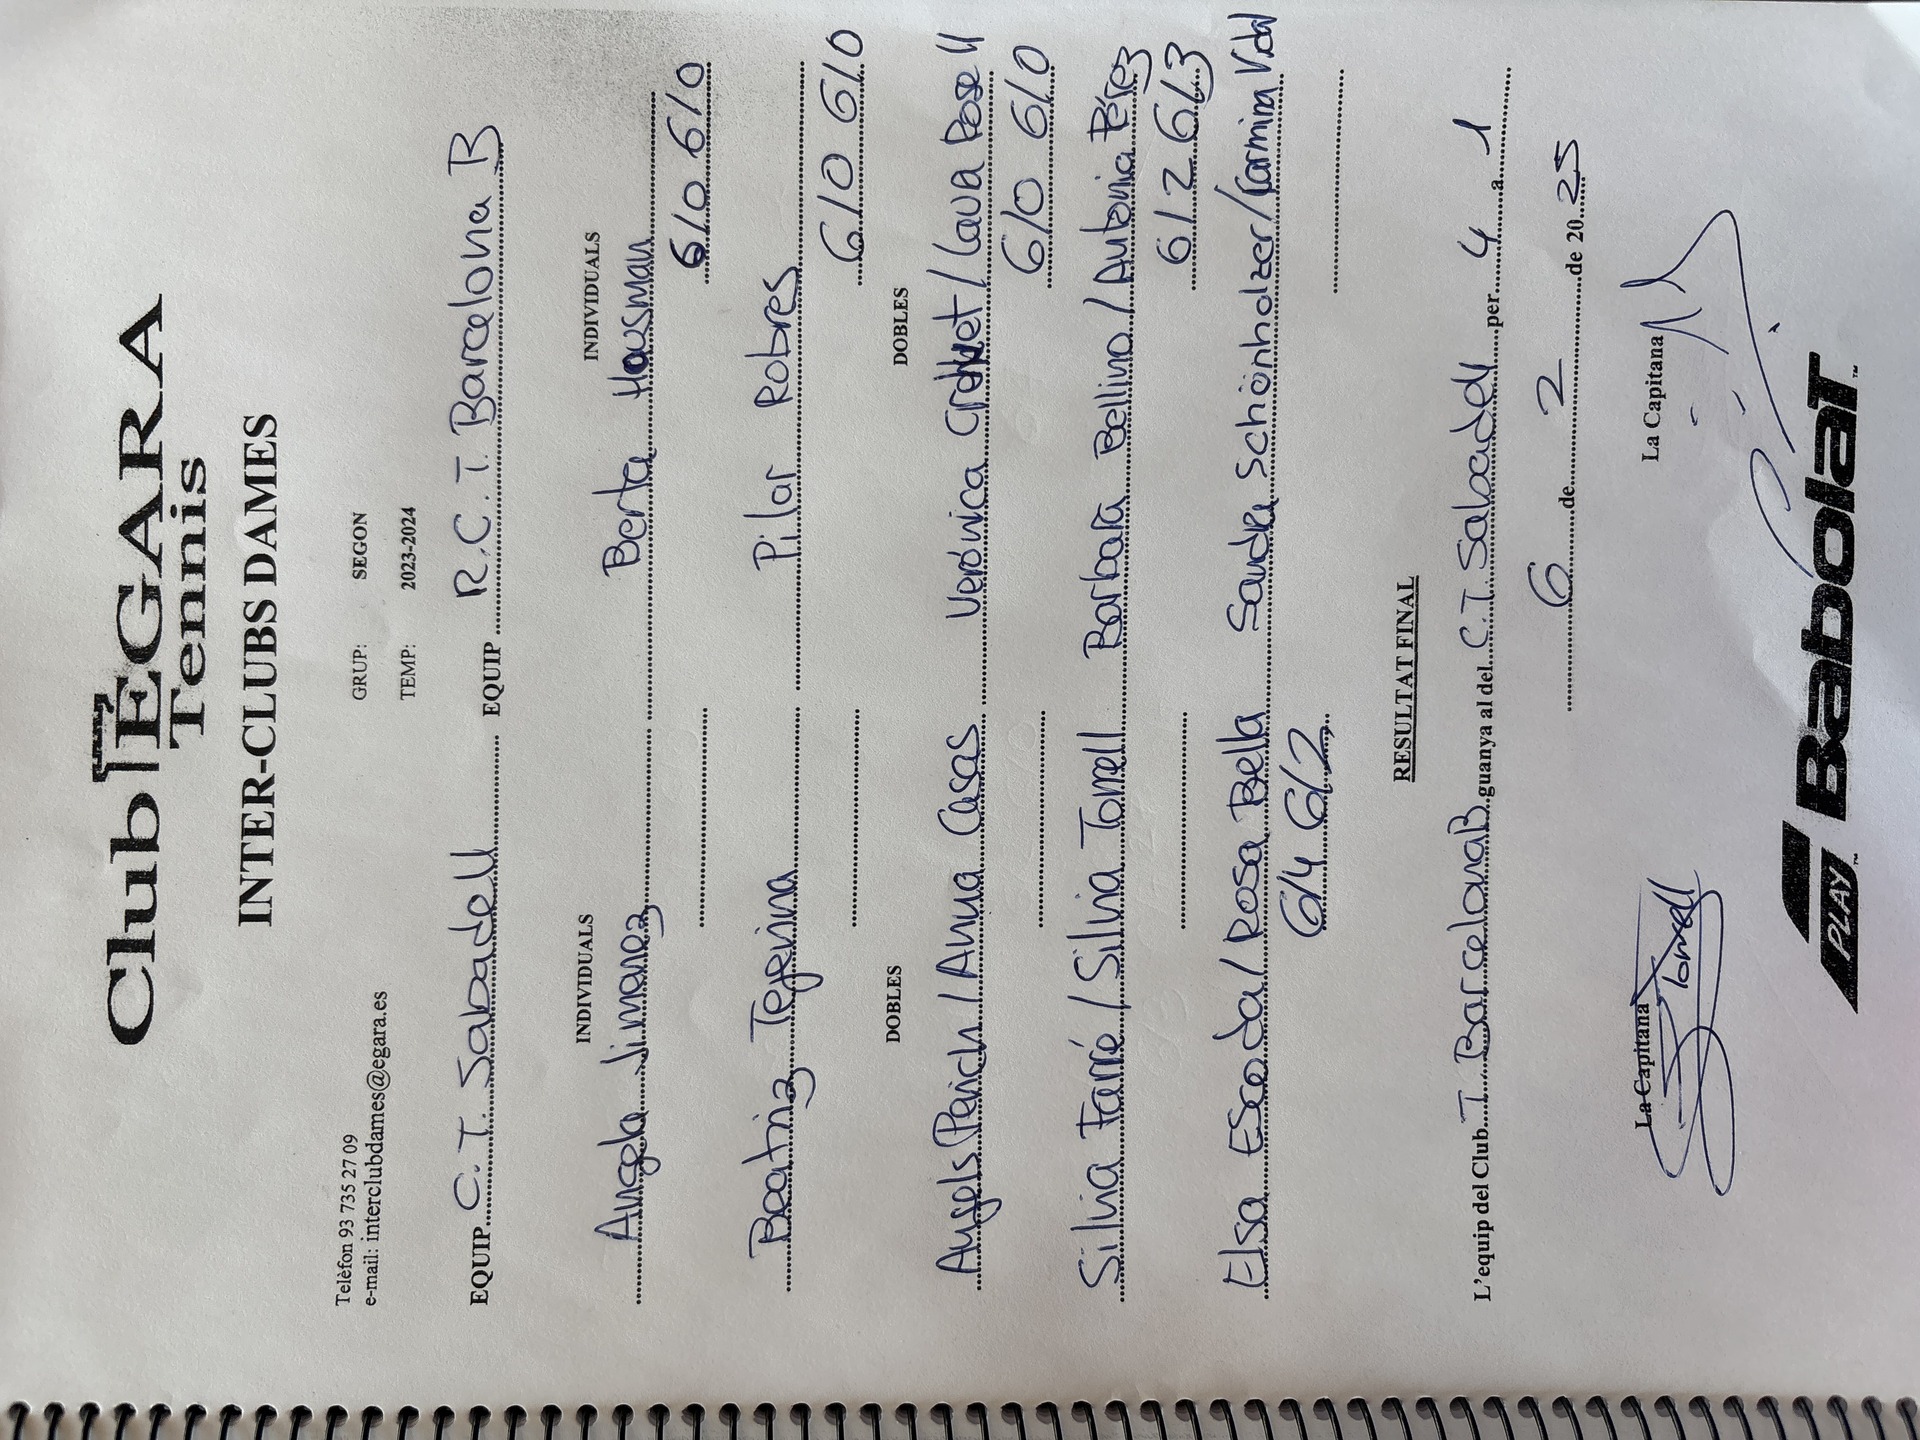 Club EGARA
Tennis
INTER-CLUBS DAMES
Telèfon 93 735 27 09
e-mail: interclubdames@egara.es
GRUP: SEGON
TEMP: 2023-2024
EQUIP C. T. Sabadell EQUIP R.C.T. Barcelona B
INDIVIDUALS INDIVIDUALS
Angela Jimenez Berta Housman
6/0 6/0
Beatriz Tejerina Pilar Robres
6/0 6/0
DOBLES DOBLES
Angels Perich / Anna Casas Verónica / Laura Rosell
6/0 6/0
Silvia Farré / Silvia Torrell Barbara Bellino / Antonia Pérez
6/2 6/3
Elsa Escoda / Rosa Bella Sandra Schönholzer / Carmina Vidal
6/4 6/2
RESULTAT FINAL
L'equip del Club T. Barcelona B guanya al del C.T. Sabadell per 4 a 1
6 de 2 de 2025
La Capitana La Capitana
S Torrell
PLAY Babolat